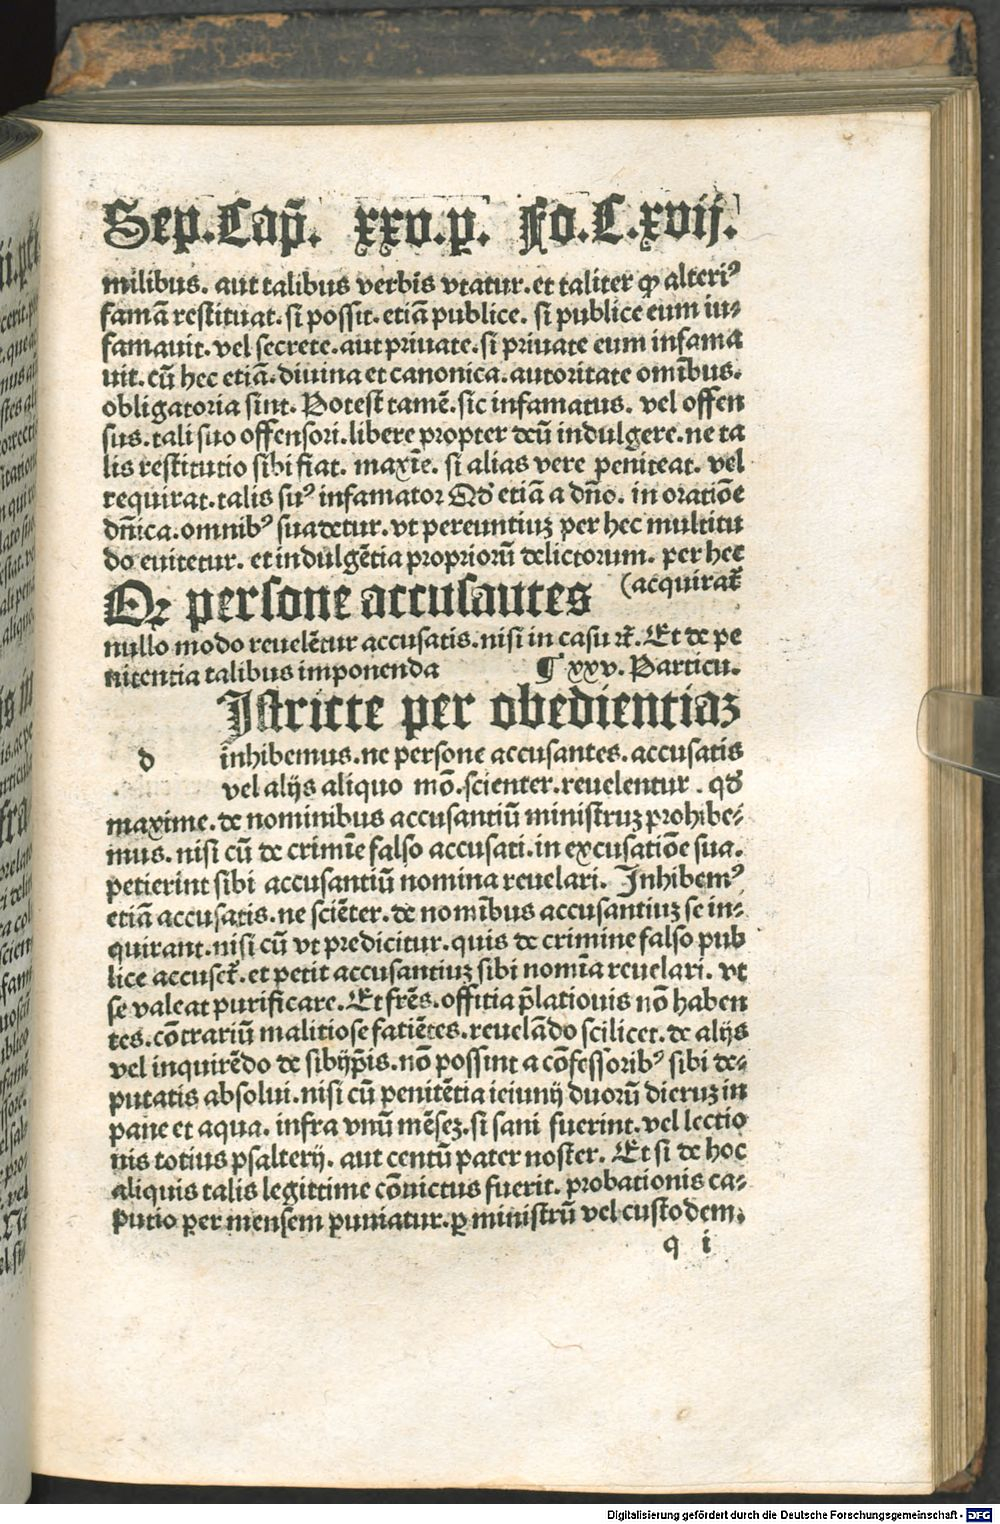 Sep.Cap̄. xxv.p. Fo.C.xvij.
milibus. aut talibus verbis vtatur. et taliter ꝙ alteriꝰ
famā restituat. si possit. etiā publice. si publice eum in⸗
famauit. vel secrete. aut priuate. si priuate eum infama
uit. cū hec etiā. diuina et canonica. autoritate omībus.
obligatoria sint. Potest tamē. sic infamatus. vel offen
sus. tali suo offensori. libere propter deū indulgere. ne ta
lis restitutio sibi fiat. maxīe. si alias vere peniteat. vel
requirat. talis suꝰ infamator Qđ etiā a dño. in oratiōe
dñica. omnibꝰ suadetur. vt pereuntiuz per hec multitu
do euitetur. et indulgētia propriorū delictorum. per hec
(acquirat̄
Qꝛ persone accusautes
nullo modo reuelētur accusatis. nisi in casu r̄. Et de pe
nitentia talibus imponenda ¶ xxv. Particu.
Istricte per obedientiaz
d inhibemus. ne persone accusantes. accusatis
vel alijs aliquo mō. scienter. reuelentur. qđ
maxime. de nominibus accusantiū ministruz prohibe⸗
mus. nisi cū de crimīe falso accusati. in excusatiōe sua.
petierint sibi accusantiū nomina reuelari. Inhibemꝰ
etiā accusatis. ne sciēter. de nomībus accusantiuz se in⸗
quirant. nisi cū vt predicitur. quis de crimine falso pub
lice accuset̄. et petit accusantiuz sibi nomīa reuelari. vt
se valeat purificare. Et frēs. offitia p̄lationis nō haben
tes. cōtrariū malitiose fatiētes. reuelādo scilicet. de alijs
vel inquirēdo de sibijp̄is. nō possint a cōfessoribꝰ sibi de⸗
putatis absolui. nisi cū penitētia ieiunij duorū dieruz in
pane et aqua. infra vnū mēsez. si sani fuerint. vel lectio
nis totius psalterij. aut centū pater noster. Et si de hoc
aliquis talis legittime cōuictus fuerit. probationis ca⸗
putio per mensem puniatur. ꝑ ministrū vel custodem.
q i
Digitalisierung gefördert durch die Deutsche Forschungsgemeinschaft - DFG